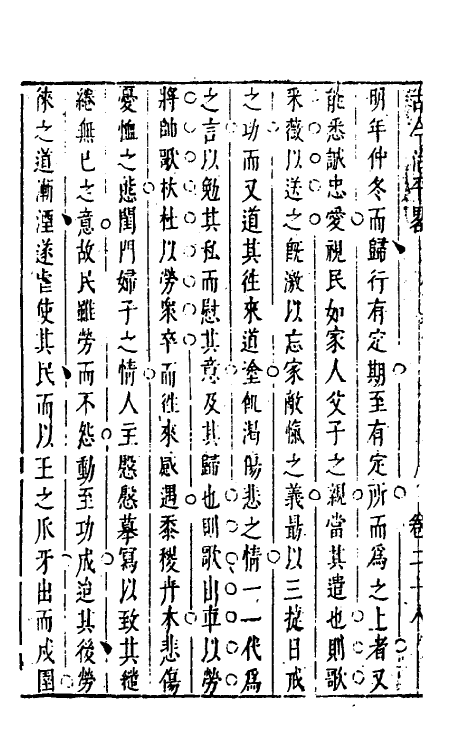 古今治平略　卷二十八
明年仲冬而歸行有定期至有定所而為之上者又
能悉誠忠愛視民如家人父子之親當其遣也則歌
采薇以送之旣激以忘家敵愾之義最以三捷日戒
之功而又道其徃來道塗飢渴傷悲之情一一代為
之言以勉其私而慰其意及其歸也則歌出車以勞
將帥歌杕杜以勞衆卒而徃來感遇黍稷卉木悲傷
憂恤之態閨門婦子之情人主慇慇摹寫以致其繾
綣無已之意故民雖勞而不怨動至功成迨其後勞
徠之道漸湮遂虐使其民而以王之爪牙出而戍圉